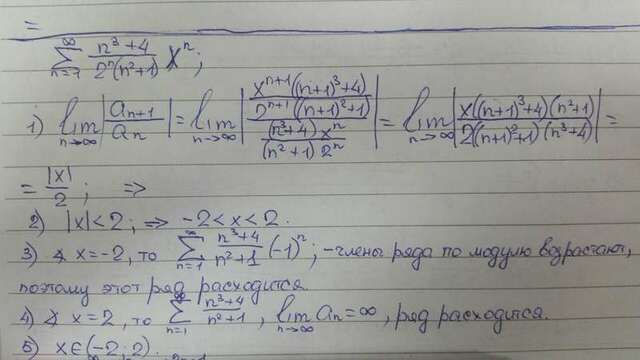 =
∞ Σ n=1 (n³+4)/(2ⁿ(n²+1)) xⁿ;
1) lim n→∞ |aₙ₊₁/aₙ| = lim n→∞ |(xⁿ⁺¹((n+1)³+4)/(2ⁿ⁺¹((n+1)²+1)))/((n³+4)xⁿ/((n²+1)2ⁿ))| = lim n→∞ |x((n+1)³+4)(n²+1)/(2((n+1)²+1)(n³+4))| =
= |x|/2; ⇒
2) |x|<2; ⇒ -2<x<2.
3) ∢ x=-2, то ∞ Σ n=1 (n³+4)/(n²+1) (-1)ⁿ; - члены ряда по модулю возрастают,
поэтому этот ряд расходится.
4) ∢ x=2, то ∞ Σ n=1 (n³+4)/(n²+1), lim n→∞ aₙ=∞, ряд расходится.
5) x∈(-2;2).